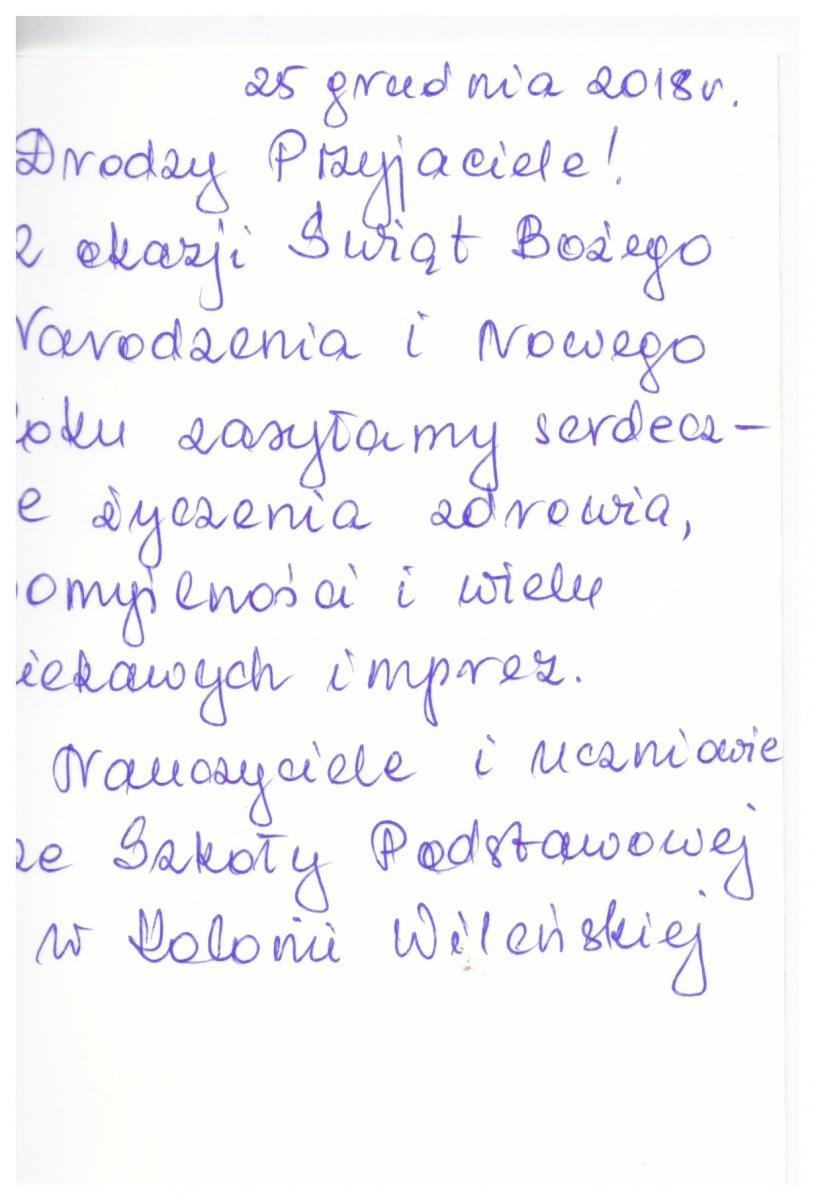 25 grudnia 2018r.
Drodzy Przyjaciele!
Z okazji Świąt Bożego
Narodzenia i Nowego
Roku zasyłamy serdecz-
e życzenia zdrowia,
pomyślności i wielu
iekawych imprez.
Nauczyciele i uczniowie
ze Szkoły Podstawowej
w Kolonii Wileńskiej